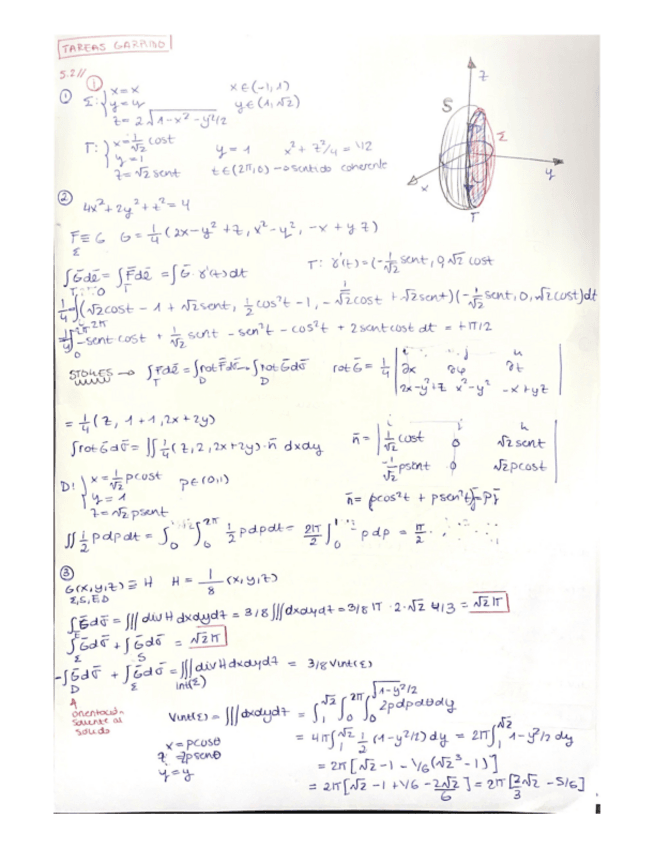 TAREAS GARRIDO
5.2//
①
① Σ: { x=x x∈(-1,1)
y=y y∈(1,√2)
z= 2√1-x²-y²/2
Γ: { x=1/√2 cost y=1 x²+z²/4 = 1/2
y=1
z=√2 sent t∈(2π,0) → sentido coherente
S Σ Γ x y z
② 4x²+2y²+z²=4
F≡G G=1/4 (2x-y²+z, x²-y², -x+yz)
Σ
∫Gdē = ∫Fdē = ∫G·γ'(t)dt Γ: γ'(t)=(-1/√2 sent, 0, √2 cost)
1/4 ∫(√2cost - 1 + √2sent, 1/2 cos²t - 1, -1/√2 cost + √2sent)(-1/√2 sent, 0, √2cost)dt
-sent cost + 1/√2 sent - sen²t - cos²t + 2sentcost dt = +π/2
STOKES → ∫Fdē = ∫rotFdσ = ∫rotGdσ rotG = 1/4 | i j k
∂x ∂y ∂z
2x-y²+z x²-y² -x+yz |
= 1/4 (z, 1+1, 2x+2y)
∫rotGdσ = ∬1/4 (z, 2, 2x+2y)·n̄ dxdy n̄ = | i j k
1/√2 cost 0 √2sent
-1/√2 ρsent 0 √2ρcost |
D: { x=1/√2 ρcost ρ∈(0,1)
y=1
z=√2 ρsent
n̄ = (ρcos²t + ρsen²t)j̄=ρj̄
∬1/2 ρdρdt = ∫∫ 1/2 ρdρdt = 2π/2 ∫ρdρ = π/2
③
G(x,y,z) ≡ H H = 1/8 (x,y,z)
Σ,S,E,D
∫Gdσ = ∭divH dxdydz = 3/8 ∭dxdydz = 3/8 π·2·√2 4/3 = √2π
E
∫Gdσ + ∫Gdσ = √2π
Σ S
-∫Gdσ + ∫Gdσ = ∭divH dxdydz = 3/8 Vint(Σ)
D Σ int(Σ)
orientación saliente al sólido
Vint(Σ) = ∭dxdydz = ∫₁^√2 ∫₀^2π ∫₀^√1-y²/2 2ρdρdθdy
x=ρcosθ
z=2ρsenθ
y=y
= 4π∫₁^√2 1/2 (1-y²/2) dy = 2π∫₁^√2 1-y²/2 dy
= 2π[√2-1-1/6(√2³-1)]
= 2π[√2-1+1/6-2√2/6] = 2π[2√2/3 - 5/6]